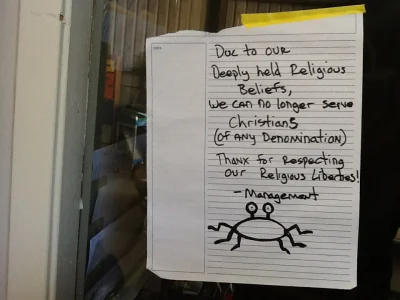 Due to our
Deeply held Religious
Beliefs,
we can no longer serve
Christians
(of any Denomination)
Thanx for Respecting
our Religious Liberties!
- Management